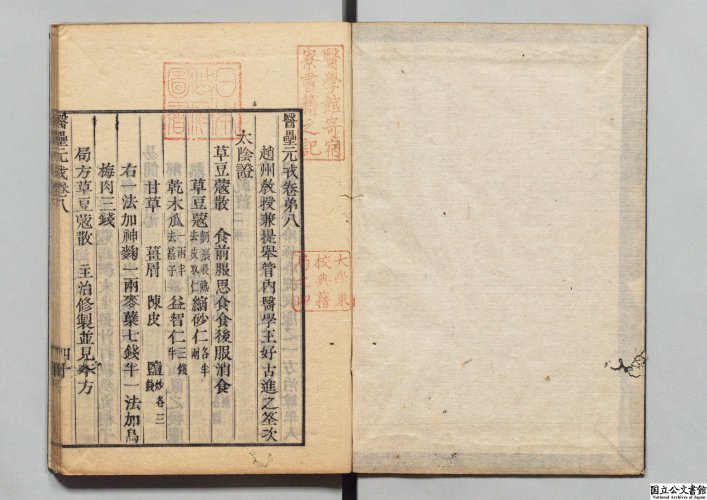 醫壘元戎卷第八
趙州教授兼提舉管內醫學王好古進之筌次
太陰證
草豆蔻散 食前脹思食食後服消食
草豆蔻 縮砂仁各半兩
乾木瓜 益智仁三錢半
甘草 薑屑 陳皮 鹽炒各三錢
右一法加神麴一兩麥糵七錢半一法加烏
梅肉三錢
局方草豆蔻散 主治修製並見本方
醫壘元戎卷八
醫學館寄宿
寮書籍之記
大學東
校典籍
日本
政府
圖書
国立公文書館
National Archives of Japan